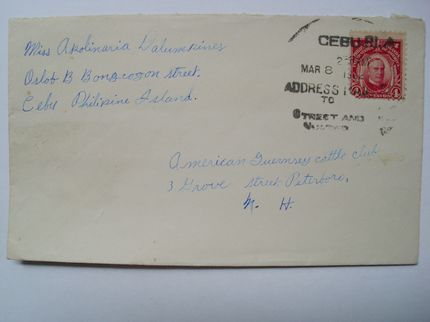 Miss Apolinaria
Oslob B Bonacaon street.
Cebu Philipine Island.
CEBU
MAR 8
ADDRESS
TO
STREET AND
American Guernsey cattle club
3 Grove street Peterboro,
N. H.